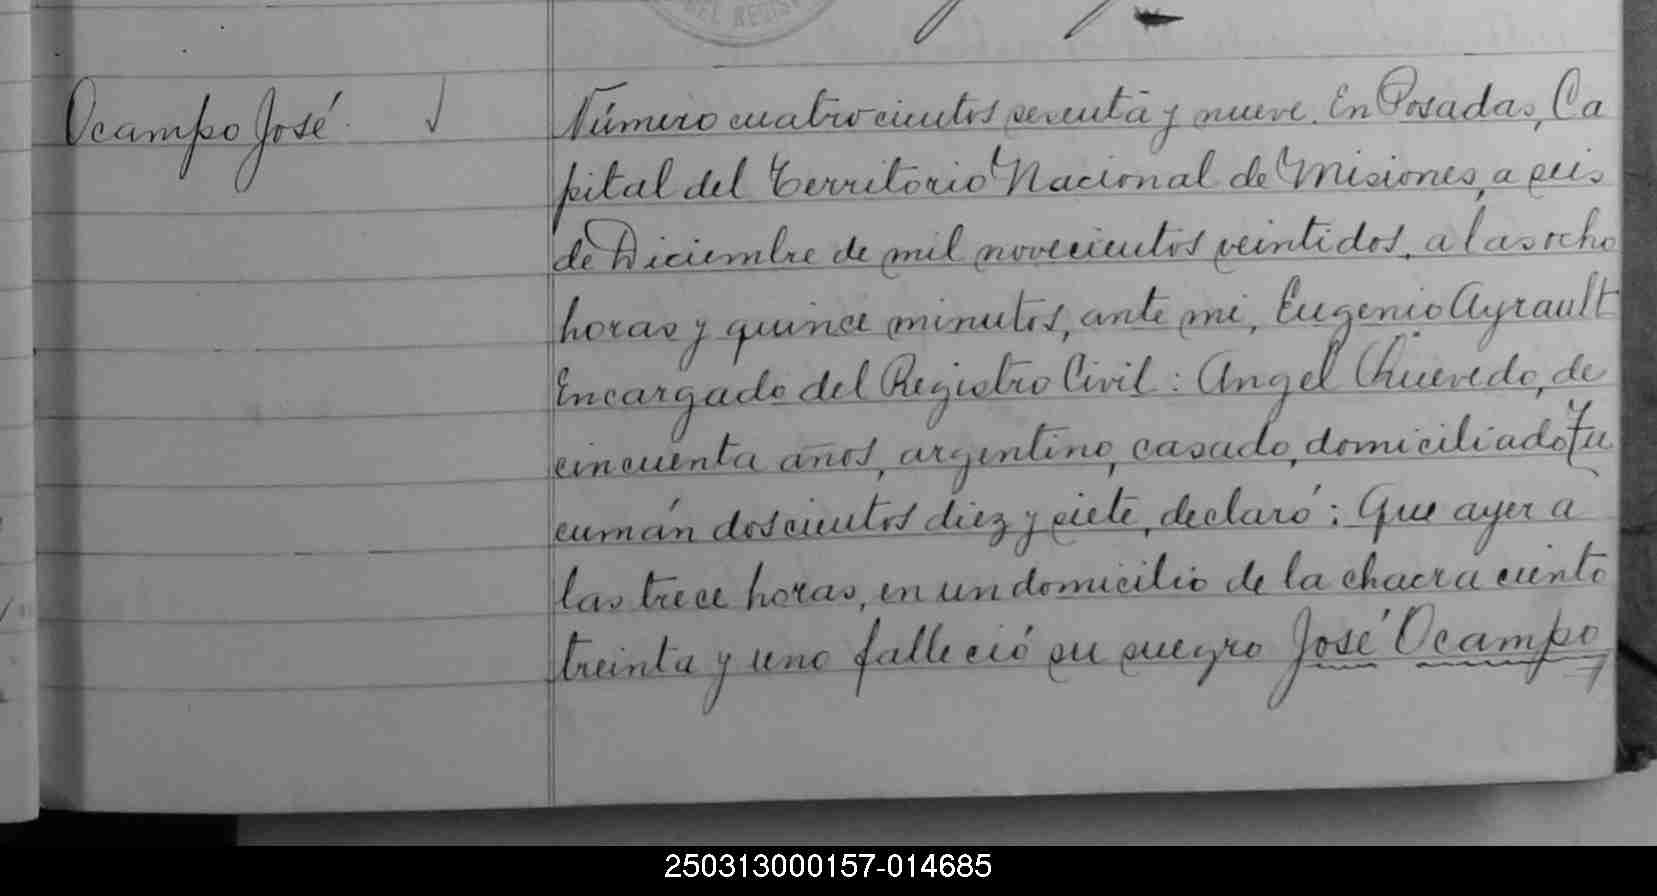 DEL REGIS
Ocampo José.
Número cuatrocientos sesenta y nueve. En Posadas, Ca
pital del Territorio Nacional de Misiones, a seis
de Diciembre de mil novecientos veintidos, a las ocho
horas y quince minutos, ante mi, Eugenio Ayrault
Encargado del Registro Civil: Angel Quevedo, de
cincuenta años, argentino, casado, domiciliado Tu
cumán doscientos diez y siete, declaró: Que ayer a
las trece horas, en un domicilio de la chacra ciento
treinta y uno falleció su suegro José Ocampo
250313000157-014685